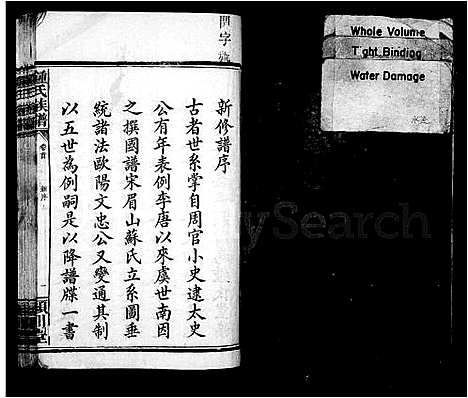 新修譜序
古者世系掌自周官小史逮太史
公有年表例李唐以來虞世南因
之撰國譜宋眉山蘇氏立系圖垂
統諸法歐陽文忠公又變通其制
以五世為例嗣是以降譜牒一書
鍾氏族譜
卷首
一
潁川堂
Whole Volume
Tight Binding
Water Damage
水渍